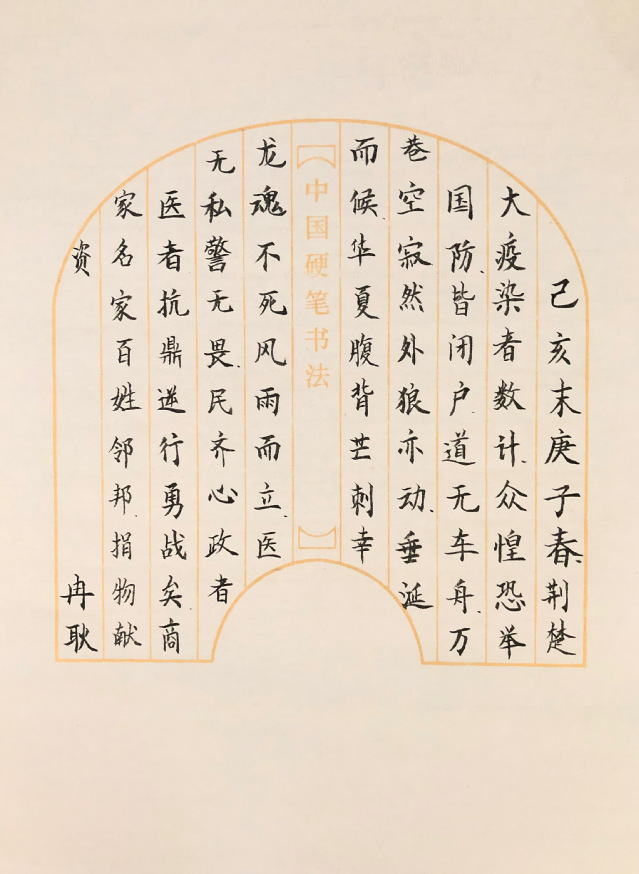 己亥末庚子春、荆楚
大疫染者数计、众惶恐举
国防、皆闭户、道无车舟、万
巷空寂然外狼亦动、垂涎
而候、华夏腹背芒刺幸
【中国硬笔书法】
龙魂不死风雨而立、医
无私警无畏、民齐心政者
医者抗鼎逆行勇战矣商
家名家百姓邻邦、捐物献
资
冉耿